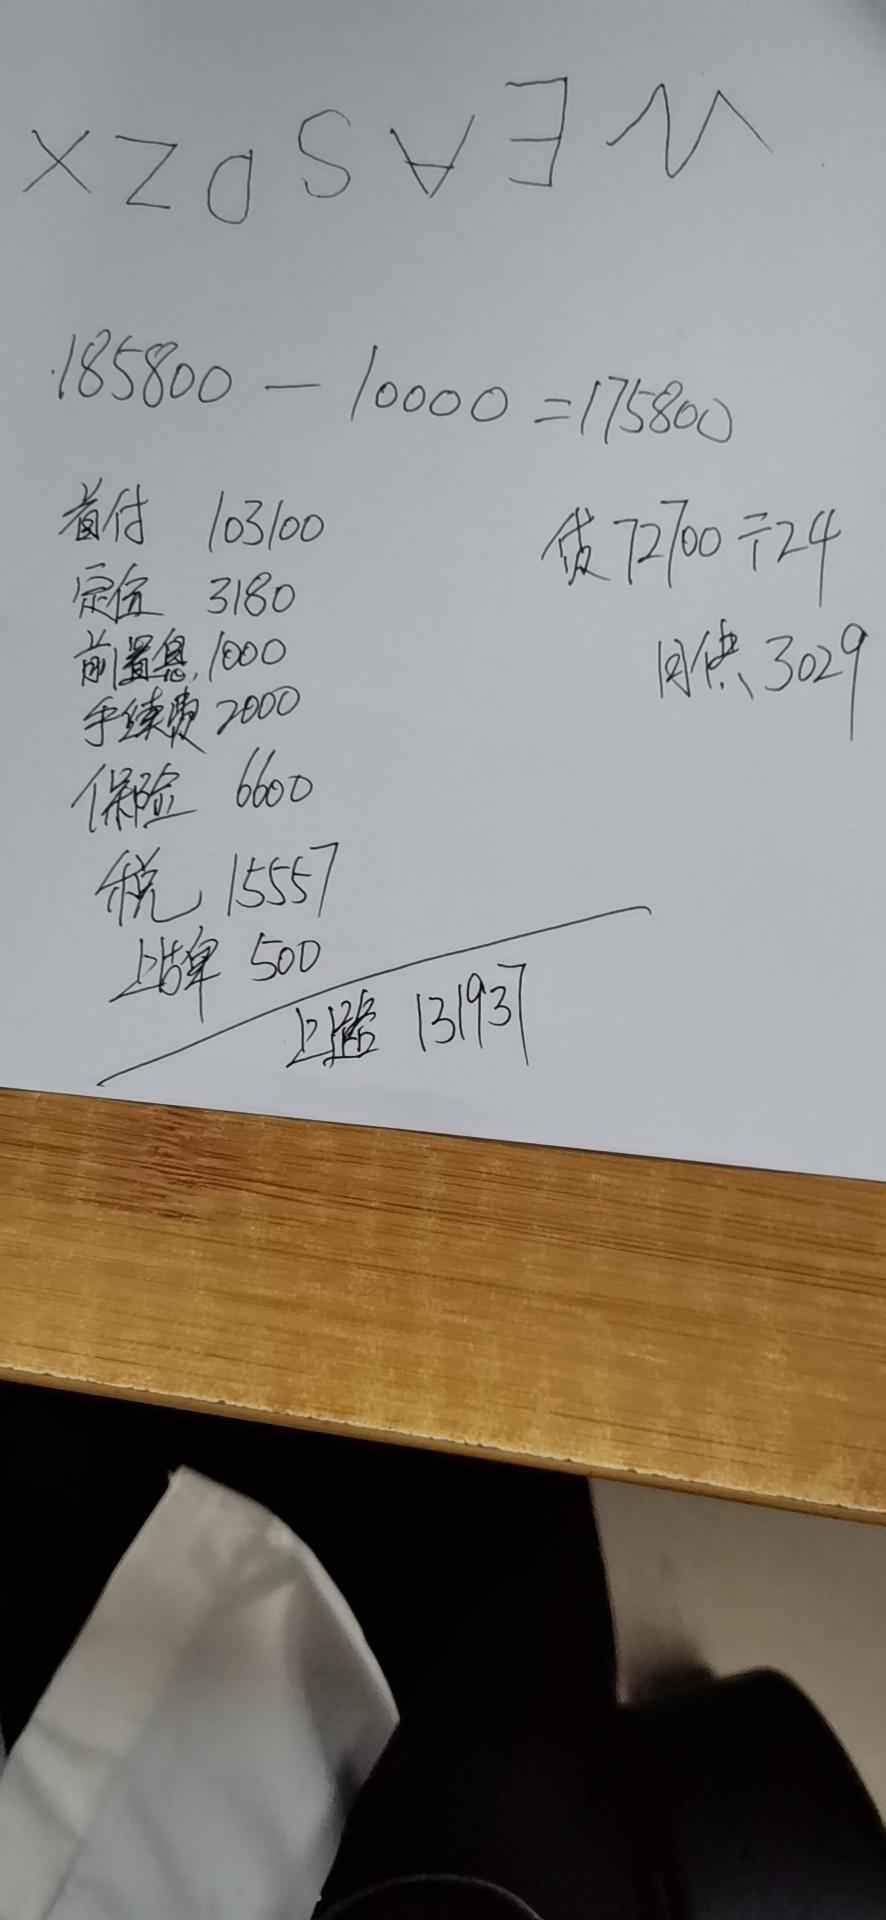 X Z D S A E W
185800 - 10000 = 175800
首付 103100
贷 72700 ÷ 24
定位 3180
月供 3029
前置息 1000
手续费 2000
保险 6600
税 15557
上牌 500
上路 131937